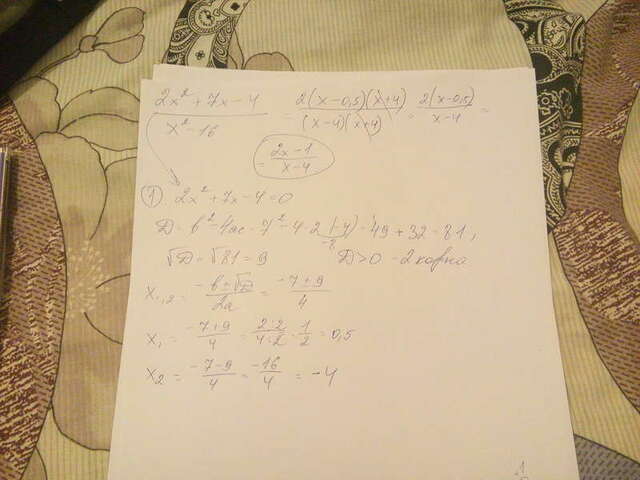 2x²+7x-4 / x²-16 = 2(x-0,5)(x+4) / (x-4)(x+4) = 2(x-0,5) / x-4 =
= 2x-1 / x-4
① 2x²+7x-4=0
D=b²-4ac=7²-4·2·(-4)=49+32=81,
√D=√81=9 D>0 - 2 корня
x₁,₂ = -b±√D / 2a = -7±9 / 4
x₁ = -7+9 / 4 = 2 / 4 = 1 / 2 = 0,5
x₂ = -7-9 / 4 = -16 / 4 = -4